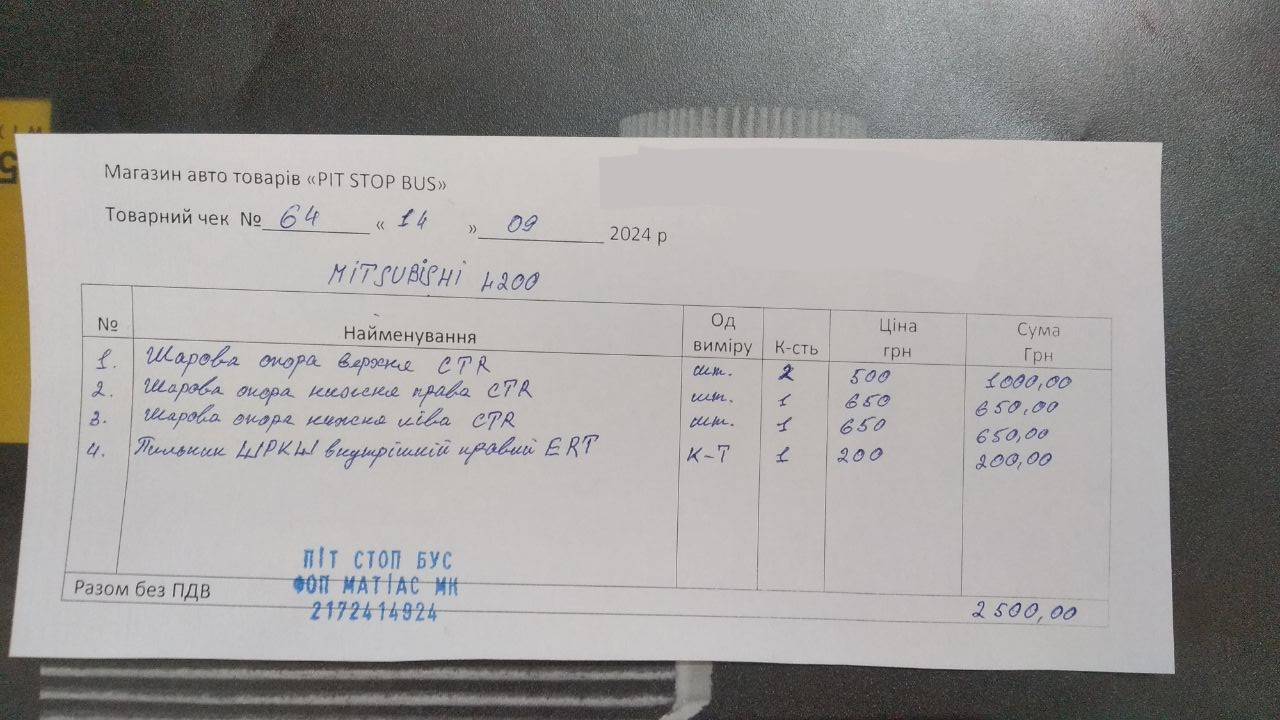 Магазин авто товарів «PIT STOP BUS»
Товарний чек № 64 « 14 » 09 2024 р
MITSUBISHI L200
№ Найменування Од виміру К-сть Ціна грн Сума Грн
1. Шарова опора верхня CTR шт. 2 500 1000,00
2. Шарова опора нижня права CTR шт. 1 650 650,00
3. Шарова опора нижня ліва CTR шт. 1 650 650,00
4. Пильник ШРКШ внутрішній правий ERT К-Т 1 200 200,00
ПІТ СТОП БУС
ФОП МАТІАС МК
2172414924
Разом без ПДВ 2500,00